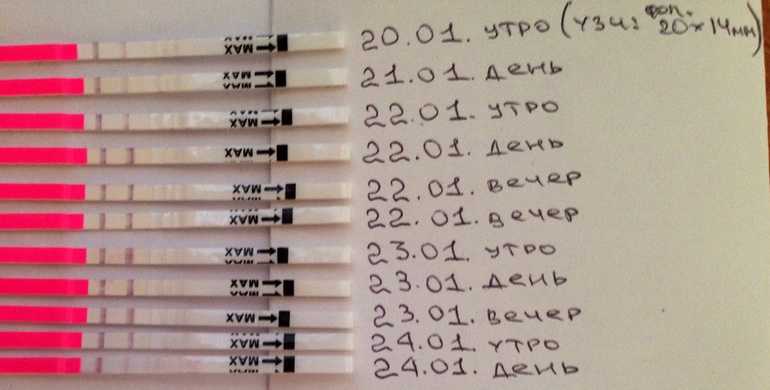 MAX 20.01. УТРО (УЗИ: фол. 20×14мм)
MAX 21.01. ДЕНЬ
MAX 22.01. УТРО
MAX 22.01. ДЕНЬ
MAX 22.01. ВЕЧЕР
MAX 22.01. ВЕЧЕР
MAX 23.01. УТРО
MAX 23.01. ДЕНЬ
MAX 23.01. ВЕЧЕР
MAX 24.01. УТРО
MAX 24.01. ДЕНЬ